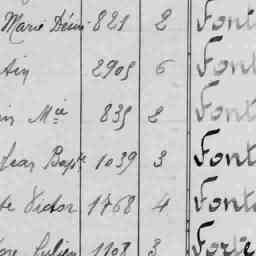 Marie Désir 821 2 Font
2905 6 Font
Mie 835 2 Font
Jean Bapte 1039 3 Font
Victor 1768 4 Font
Julien 1108 3 Forte